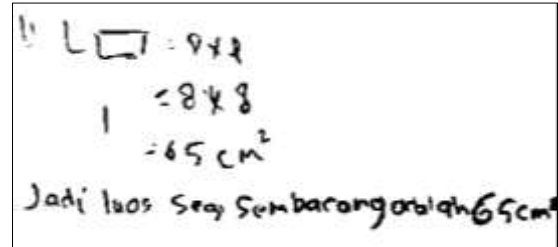 L = 8 x 8
= 8 x 8
= 65 cm²
Jadi luas Seg Sembarang adalah 65cm²